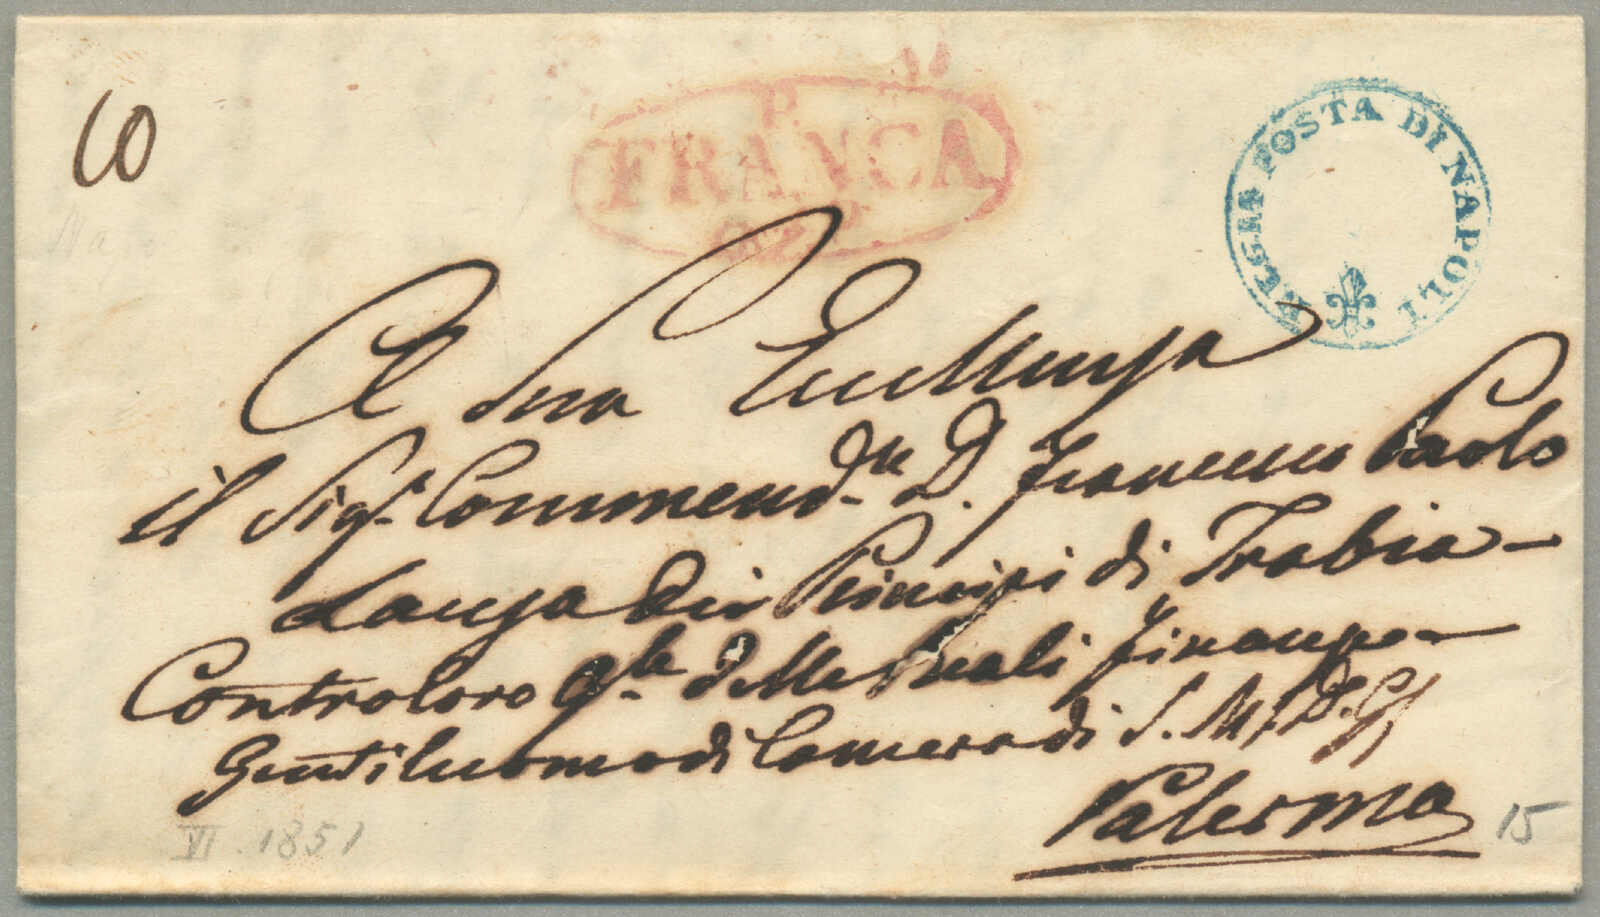 10
P.
FRANCA
REGIA POSTA DI NAPOLI
A Sua Eccellenza
il Sigr. Commendre. D. Francesco Paolo
Lanza dei Principi di Trabia
Controloro Gle delle Reali Finanze
Gentiluomo di Camera di S. M. D. G.
Palermo
VI. 1851
15